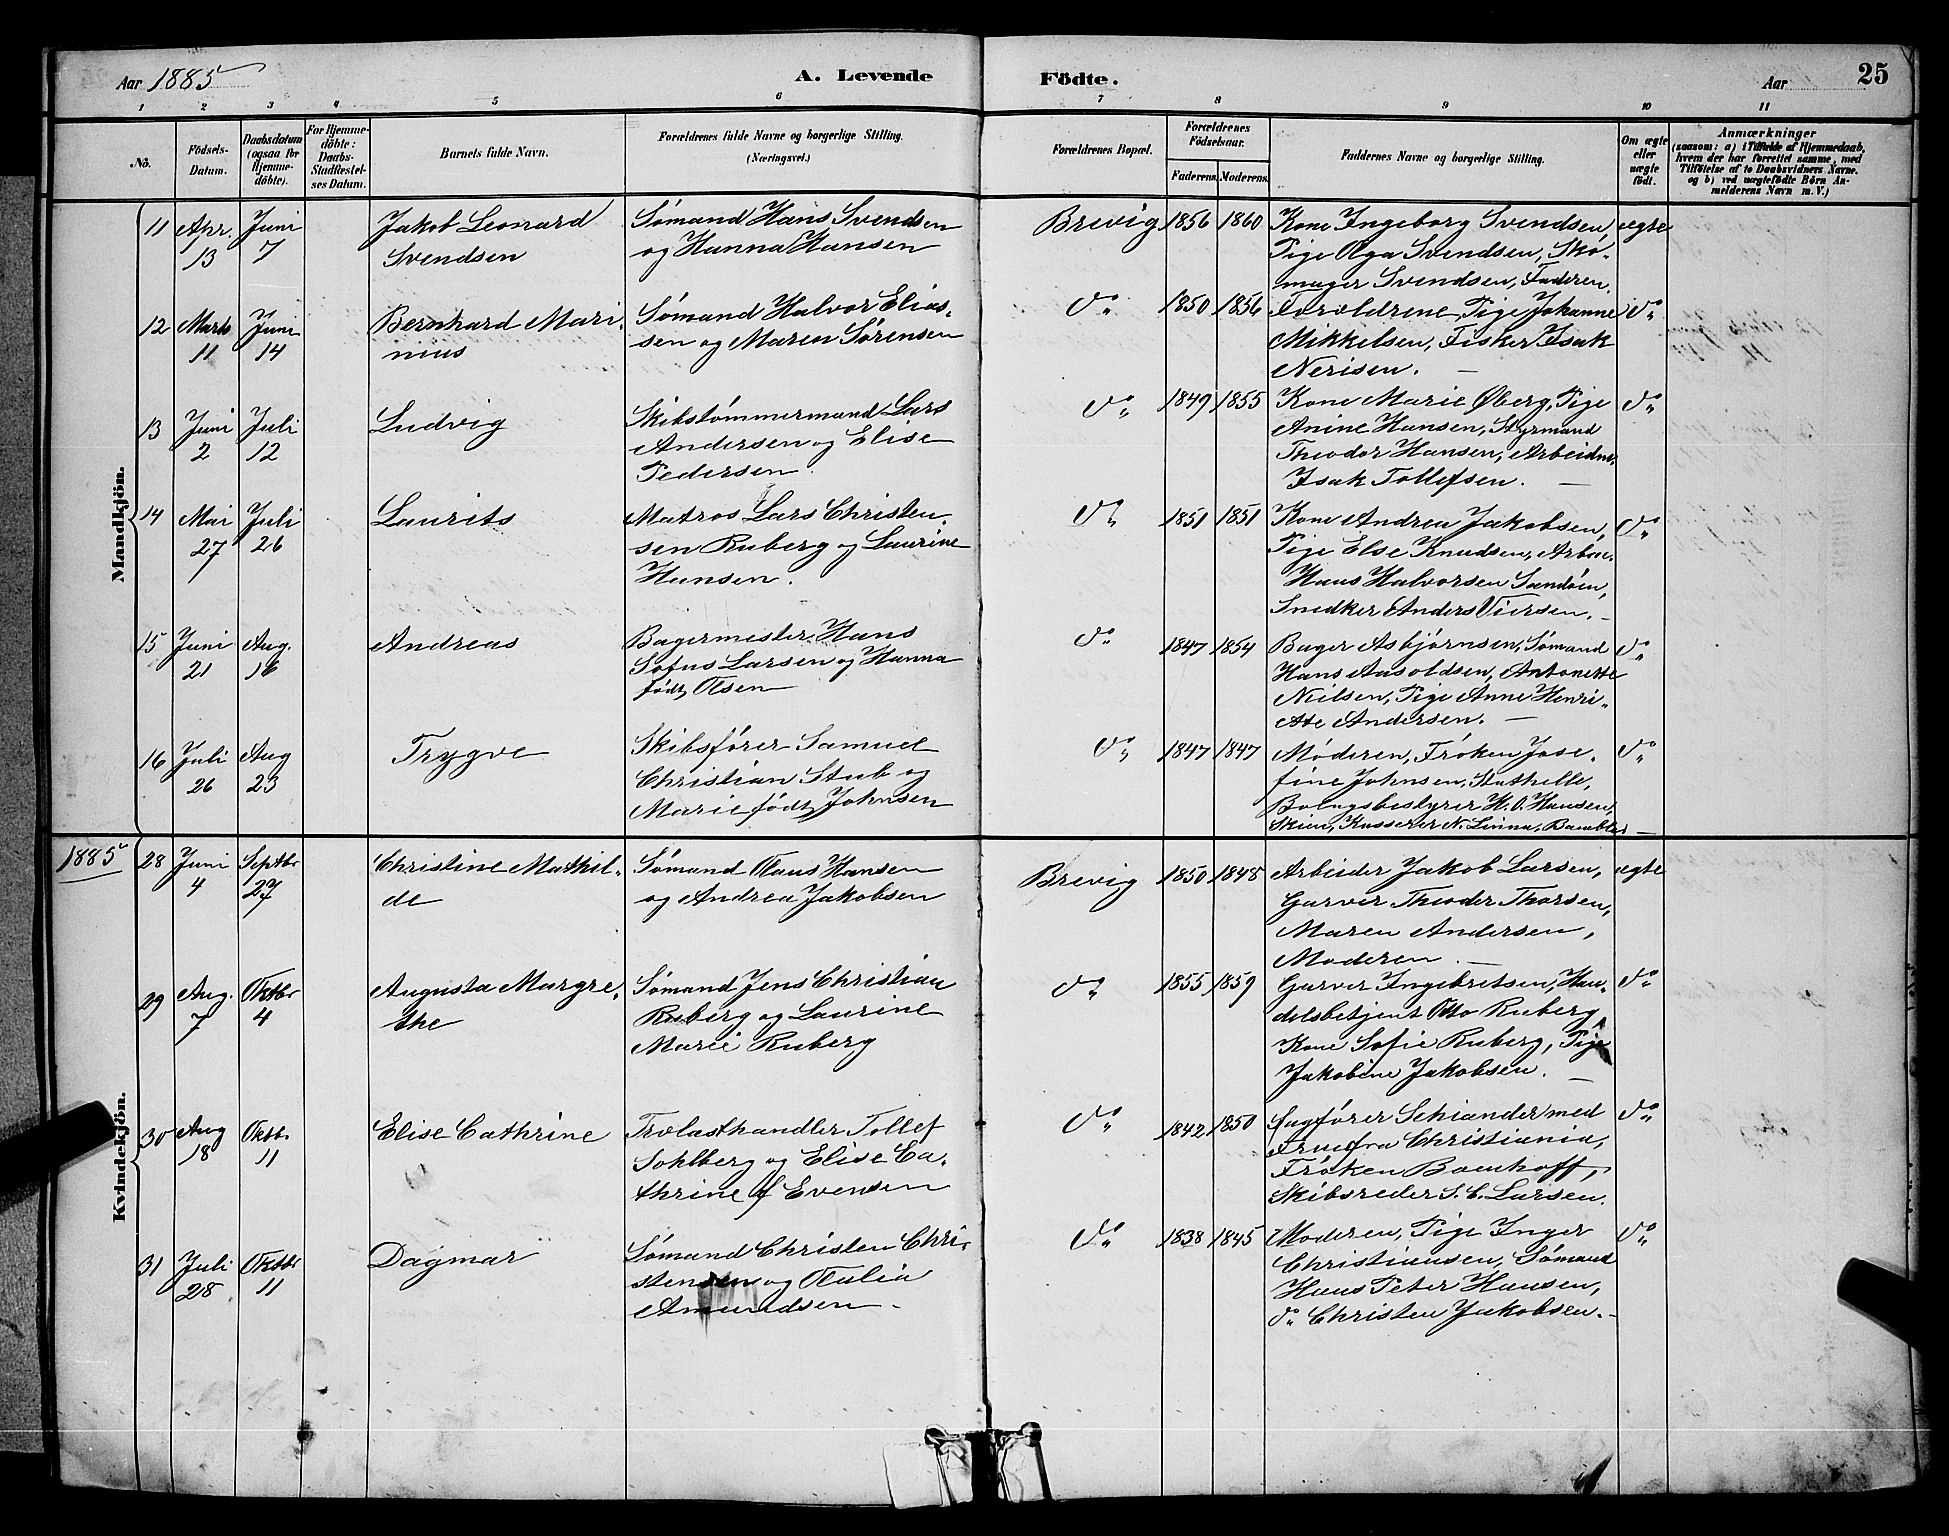 Aar 1885 A. Levende Födte. Aar 25
1 2 3 4 5 6 7 8 9 10 11
No.
Födsels-
Datum.
Daabsdatum
(ogsaa for
Hjemme-
döbte).
For Hjemme-
döbte:
Daabs-
Stadfæstel-
ses Datum.
Barnets fulde Navn.
Forældrenes fulde Navne og borgerlige Stilling.
(Næringsvei.)
Forældrenes Bopæl.
Forældrenes
Födselsaar.
Faderens. Moderens.
Faddernes Navne og borgerlige Stilling.
Om ægte
eller
uægte
födt.
Anmærkninger
(saasom: a) i Tilfælde af Hjemmedaab,
hvem der har forrettet samme, med
Tilföielse af to Daabsvidners Navne.
og b) ved uægtefödte Börn An-
melderens Navn m. V.)
Mandkjön.
11 Apr. 13 Juni 7
Jakob Leonard
Svendsen
Sømand Hans Svendsen
og Hanna Hansen
Brevig 1856 1860
Kone Ingeborg Svendsen,
Pige Olga Svendsen, Sko-
mager Svendsen, Faderen.
ægte
12 Marts 11 Juni 14
Bernhard Mari-
nius
Sømand Halvor Elias-
sen og Maren Sørensen
do 1850 1856
Forældrene, Pige Johanne
Mikkelsen, Fisker Isak
Nerisen. —
do
13 Juni 2 Juli 12
Ludvig
Skibstømmermand Lars
Andersen og Elise
Pedersen.
do 1849 1855
Kone Marie Øberg, Pige
Anine Hansen, Styrmand
Theodor Hansen, Arbeidm.
Isak Tollefsen. —
do
14 Mai 27 Juli 26
Laurits
Matros Lars Christen-
sen Ruberg og Laurine
Hansen.
do 1851 1851
Kone Andrea Jakobsen,
Pige Else Knudsen, Arbm.
Hans Halvorsen Sandøen,
Snedker Anders Viersen. —
do
15 Juni 21 Aug. 16
Andreas
Bagermester Hans
Sofus Larsen og Hanna
født Olsen
do 1847 1854
Bager Asbjørnsen, Sømand
Hans Aasoldsen, Antonette
Nielsen, Pige Anne Henri-
ette Andersen. —
do
16 Juli 26 Aug 23
Trygve
Skibsfører Samuel
Christian Stub og
Marie født Johnsen
do 1847 1847
Moderen, Frøken Jose-
fine Johnsen, Stathelle,
Bolagsbestyrer H. O. Hansen,
Skien, Kasserer N. Linna, Bamble. —
do
1885
Kvindekjön.
28 Juni 4 Septbr 27
Christine Mathil-
de
Sømand Claus Hansen
og Andrea Jakobsen
Brevig 1850 1848
Arbeider Jakob Larsen,
Garver Theoder Thorsen,
Maren Andersen,
Moderen. —
ægte
29 Aug. 7 Oktbr 4
Augusta Margre-
the
Sømand Jens Christian
Ruberg og Laurine
Marie Ruberg
do 1855 1859
Garver Ingebretsen, Han-
delsbetjent Otto Ruberg
Kone Sofie Ruberg, Pige
Jakobine Jakobsen. —
do
30 Aug 18 Oktb. 11
Elise Cathrine
Trælasthandler Tollef
Sohlberg og Elise Ca-
thrine f Evensen
do 1842 1850
Sagfører Schiander med
Frue fra Christiania,
Frøken Bomhoff,
Skibsreder S. C. Larsen.
do
31 Juli 28 Oktbr 11
Dagmar
Sømand Christen Chri-
stensen og Olulia
Amundsen. —
do 1838 1845
Moderen, Pige Inger
Christiansen, Sømand
Hans Peter Hansen,
do Christen Jakobsen. —
do